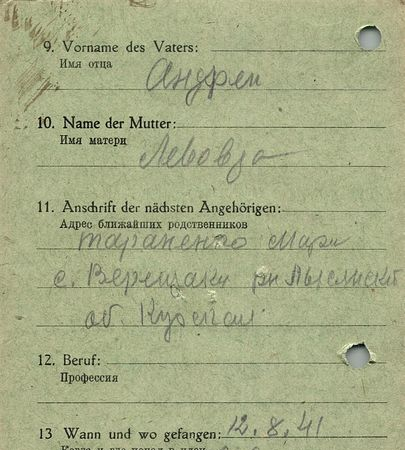 9. Vorname des Vaters:
Имя отца
Андрей
10. Name der Mutter:
Имя матери
11. Anschrift der nächsten Angehörigen:
Адрес ближайших родственников
тараненко Мари
с. Верещаки рн
об. Курская
12. Beruf:
Профессия
13 Wann und wo gefangen: 12.8.41